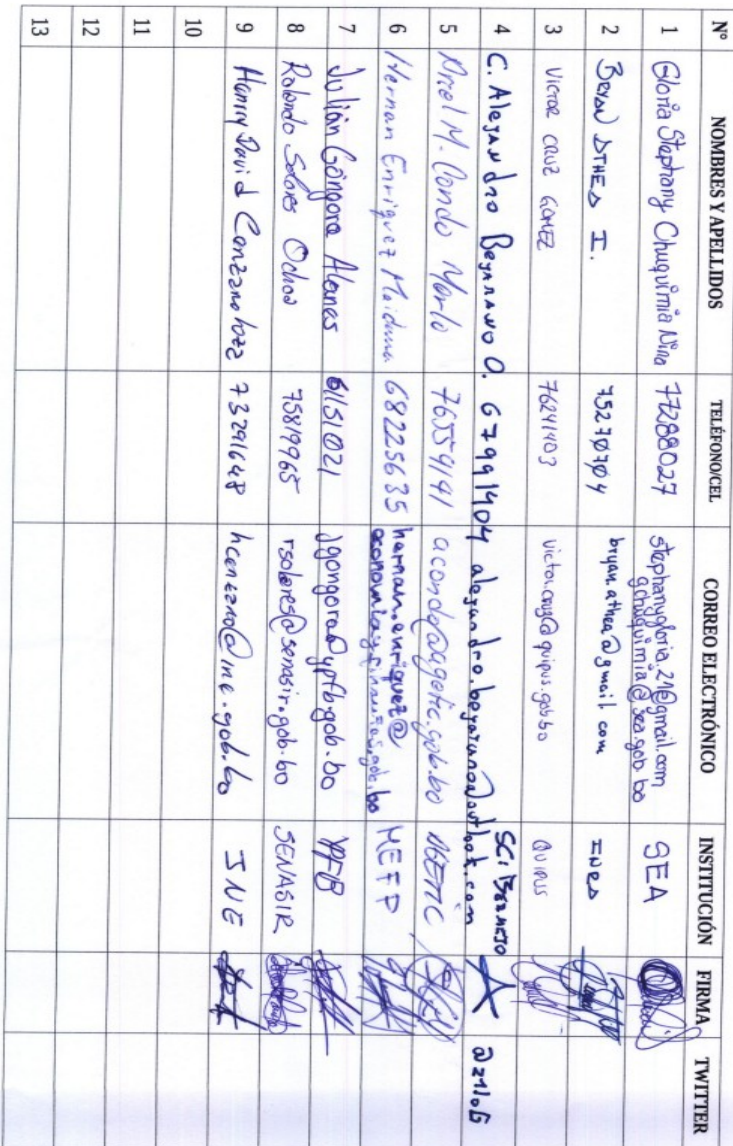 Nº NOMBRES Y APELLIDOS TELÉFONO/CEL CORREO ELECTRÓNICO INSTITUCIÓN FIRMA TWITTER
1 Gloria Stephany Chuquimia Nina 77288027 stephanygloria_21@gmail.com SEA
gchuquimia@sea.gob.bo
2 I. bryan.athea@gmail.com
3 VICTOR CRUZ GOMEZ 76241403 victor.cruz@quipus.gob.bo QUIPUS
4 C. Alejandro Bejarano O. 67991404 alejandro.bejarano@outlook.com SCI BERMEJO
5 Ariel M. Condo 76559141 acondo@agetic.gob.bo AGETIC
6 Hernan Enriquez Maidana 68225635 hernan.enriquez@ MEFP
economiayfinanzas.gob.bo
7 Julián Góngora 61151021 jgongora@ypfb.gob.bo YPFB
8 Rolando Solares Ochoa 75819965 rsolares@senasir.gob.bo SENASIR
9 David 73291648 hcenzano@ine.gob.bo INE
10
11
12
13